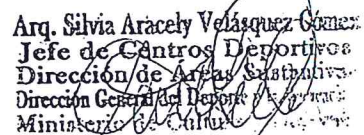 Arq. Silvia Aracely Velásquez Gómez
Jefe de Centros Deportivos
Dirección de Áreas Sustantivas
Dirección General del Deporte y
Ministerio de Cultura